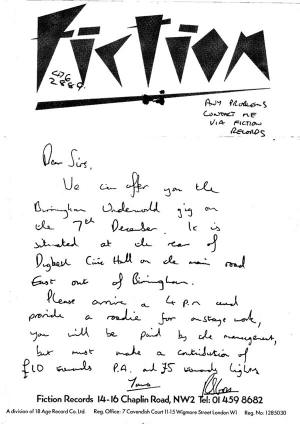 Fiction
ANY PROBLEMS
CONTACT ME
VIA FICTION
RECORDS
Dear Sirs,
We can offer you the
Birmingham Underworld gig on
the 7th December. It is
situated at the rear of
Digbeth Civic Hall on the main road
East out of Birmingham.
Please arrive 4 p.m and
provide a roadie for onstage work,
you will be paid by the management,
but must make a contribution of
£10 towards P.A. and £5 towards lights
Yours
Fiction Records 14-16 Chaplin Road, NW2 Tel: 01 459 8682
A division of 18 Age Record Co. Ltd. Reg. Office: 7 Cavendish Court 11-15 Wigmore Street London W1 Reg. No: 1285030